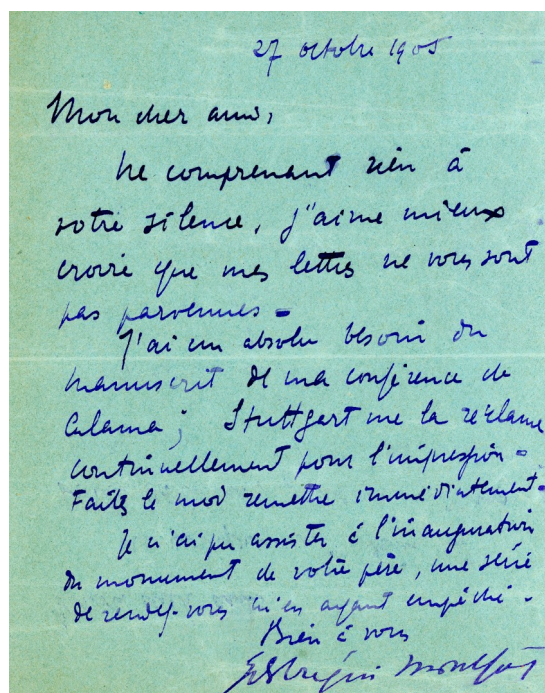 27 octobre 1905
Mon cher ami,
Ne comprenant rien à
votre silence, j'aime mieux
croire que mes lettres ne vous sont
pas parvenues -
J'ai un absolu besoin du
manuscrit de ma conférence de
; Stuttgart me la réclame
continuellement pour l'impression -
Faites le moi remettre immédiatement -
Je n'ai pu assister à l'inauguration
du monument de votre père, une série
de rendez-vous m'en ayant empêché.
Bien à vous